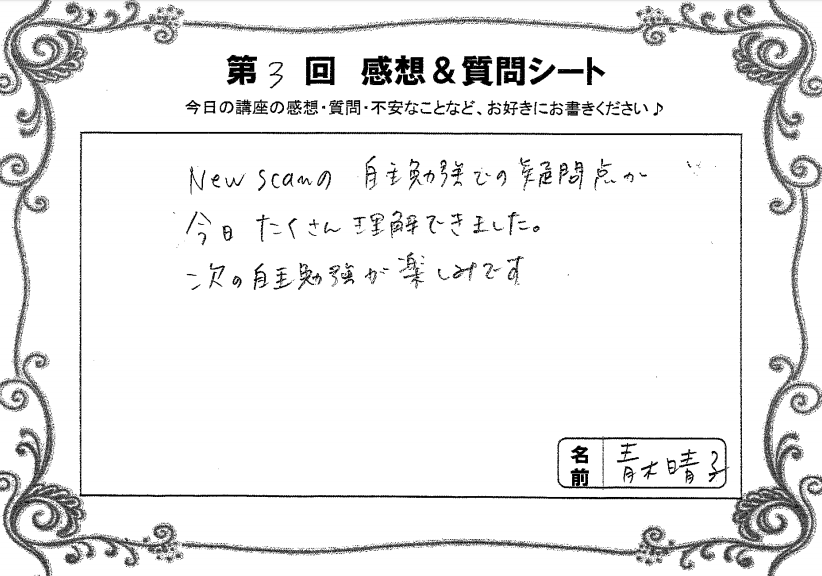 第3回 感想&質問シート
今日の講座の感想・質問・不安なことなど、お好きにお書きください♪
New Scanの 自主勉強での疑問点が
今日 たくさん理解できました。
次の自主勉強が楽しみです
名前 青木晴子